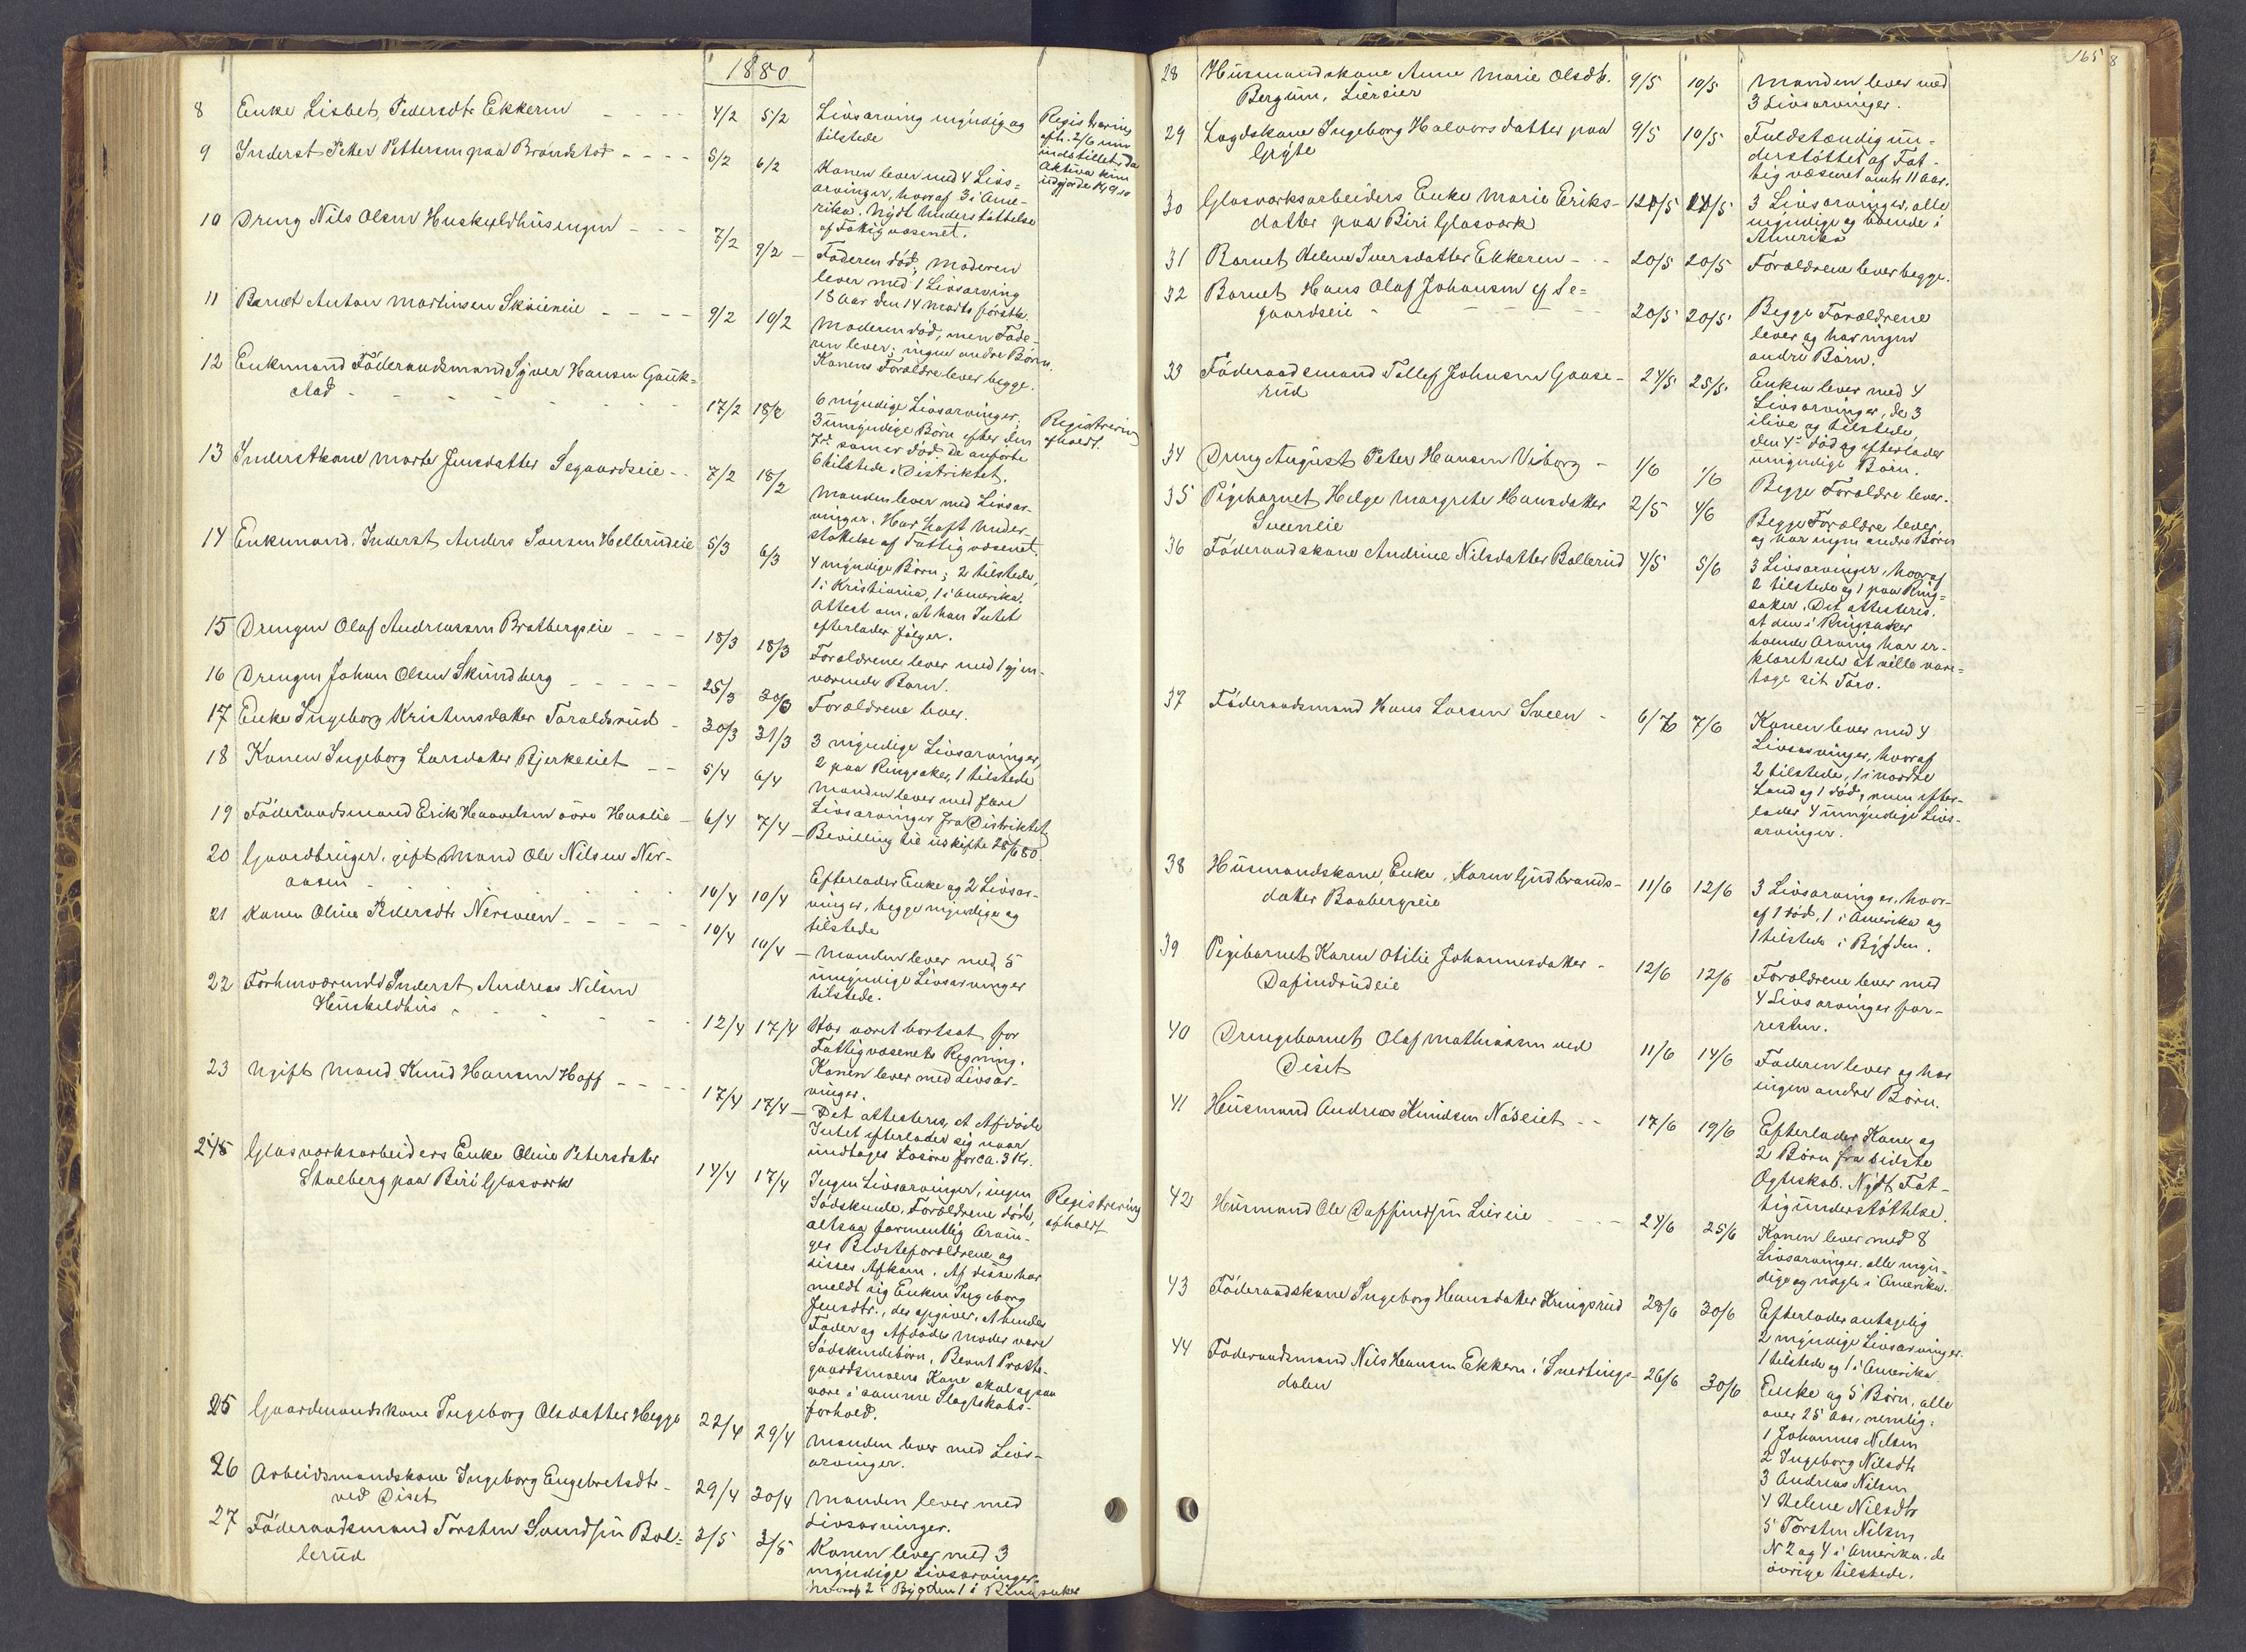 1880
8 Enke Lisbet Pedersdtr Ekkern - - - - 4/2 5/2 Livsarving myndig og
tilstede
Registrering
afh. 2/6 men
indstillet, da
Aktiva kun
udgjorde
9 Inderst Petter Pettersen paa Brøndstad - - - - 5/2 6/2 Konen lever med 4 Livs=
arvinger, hvoraf 3 i Ame-
rika. Nydt Understøttelse
af Fattigvæsenet.
10 Dreng Nils Olsen Huskeldhusengen - - - 7/2 9/2 - Faderen død, Moderen
lever med 1 Livsarving
18 Aar den 14 Marts førstk.
11 Barnet Anton Martinsen Skaieneie - - - - 9/2 10/2 Moderen død, men Fade-
ren lever; ingen andre Børn.
Konens Forældre lever begge.
12 Enkemand Føderaadsmand Syver Hansen Gauk=
stad - - - - - - 17/2 18/2 6 myndige Livsarvinger,
3 umyndige Børn efter den
7de som er død. De anførte
6 tilstede i Distriktet.
Registrering
afholdt.
13 Inderstkone Marte Jensdatter Segaardseie - - 7/2 18/2 Manden lever med Livsar-
vinger. Har havt Under-
støttelse af Fattigvæsenet.
14 Enkemand. Inderst Anders Iversen Hellerudeie 5/3 6/3 4 myndige Børn; 2 tilstede,
1 i Kristiania, 1 i Amerika.
Attest om, at han Intet
efterlader følger.
15 Drengen Olaf Andreassen Bratbergseie - - - 18/3 18/3 Forældrene lever med 1 gjen-
værende Barn.
16 Drengen Johan Olsen Skundberg - - - - - 25/3 30/3 Forældrene lever.
17 Enke Ingeborg Kristensdatter Taraldsrud - 30/3 31/3 3 myndige Livsarvinger,
2 paa Ringsaker, 1 tilstede
18 Konen Ingeborg Larsdatter Bjerkeeiet - - 5/4 6/4 Manden lever med flere
Livsarvinger fra Distriktet
19 Føderaadsmand Erik Haavelsen øvre Haslie - 6/4 7/4 - Bevilling til uskifte 28/6 80.
20 Gaardbruger, gift Mand Ole Nilsen Ner-
aasen - - - - - - 10/4 10/4 Efterlader Enke og 2 Livsar-
vinger, begge myndige og
tilstede
21 Konen Oline Pedersdtr Nersveen - - - - 10/4 10/4 - Manden lever med 5
umyndige Livsarvinger
tilstede.
22 Forhenværende Inderst Andreas Nilsen
Huskeldhus - - - - - - 12/4 17/4 Har været bortsat for
Fattigvæsenets Regning.
Konen lever med Livsar-
vinger.
23 Ugift Mand Knud Hansen Hoff - - - - 17/4 17/4 - Det attesteres, at Afdøde
Intet efterlader sig naar
undtages Løsøre for ca. 3 Kr.
24 Glasværksarbeiders Enke Oline Petersdatter
Stalberg paa Biri Glasværk 14/4 17/4 Ingen Livsarvinger, ingen
Sødskende, Forældrene døde,
altsaa formentlig Arvin-
ger Bedsteforældrene og
disses Afkom. Af disse har
meldt sig Enken Ingeborg
Jensdtr., der opgiver, at hendes
Fader og Afdødes Moder vare
Sødskendebørn. Bernt Præste-
gaardsmoens Kone skal ogsaa
være i samme Slagtskabs-
forhold.
Registrering
afholdt
25 Gaardmandskone Ingeborg Olsdatter Hegge 22/4 29/4 Manden lever med Livs-
arvinger.
26 Arbeidsmandskone Ingeborg Engebretsdtr -
ved Diset 29/4 30/4 Manden lever med
Livsarvinger.
27 Føderaadsmand Torsten Svendsen Bal=
lerud 3/5 3/5 Konen lever med 3
myndige Livsarvinger,
hvoraf 2 i Bygden 1 i Ringsaker
165
28 Husmandskone Anne Marie Olsdtr.
Bergum, Liereier 9/5 10/5 Manden lever med
3 Livsarvinger.
29 Lægdskone Ingeborg Halvorsdatter paa
Gryte 9/5 10/5 Fuldstændig un-
derstøttet af Fat-
tigvæsenet omtr 11 Aar.
30 Glasværksarbeiders Enke Marie Eriks-
datter paa Biri Glasværk 3 Livsarvinger, alle
myndige og boende i
Amerika
31 Barnet Helene Iversdatter Ekkeren - - 20/5 20/5 Forældrene lever begge.
32 Barnet Hans Olaf Johansen af Se=
gaardseie - - - - - - 20/5 20/5 Begge Forældrene
lever og har ingen
andre Børn.
33 Føderaadsmand Tollef Johnsen Gaase-
rud 24/5 25/5 Enken lever med 4
Livsarvinger, de 3
ilive og tilstede,
den 4de død og efterlader
umyndige Børn.
34 Dreng August Peter Hansen Viborg - 1/6 1/6 Begge Forældre lever.
35 Pigebarnet Helge Margrete Hansdatter
Sveenlie 2/5 4/6 Begge Forældre lever,
og har ingen andre Børn
36 Føderaadskone Andrine Nilsdatter Ballerud 4/5 5/6 3 Livsarvinger, hvoraf
2 tilstede og 1 paa Ring=
saker. Det attesteres,
at den i Ringsaker
boende Arving har er-
klæret selv at ville vare-
tage sit Tarv.
37 Føderaadsmand Hans Larsen Sveen - 6/6 7/6 Konen lever med 4
Livsarvinger, hvoraf
2 tilstede, 1 i nordre
Land og 1 død, men efter-
lader 4 umyndige Livs-
arvinger.
38 Husmandskone, Enke, Karen Gudbrands-
datter Baabergseie 11/6 12/6 3 Livsarvinger, hvor-
af 1 død, 1 i Amerika og
1 tilstede i Bygden.
39 Pigebarnet Karen Otilie Johannesdatter -
Dafindrudeie 12/6 12/6 Forældrene lever med
4 Livsarvinger for-
resten.
40 Drengebarnet Olaf Mathiassen ved
Diset 11/6 14/6 Faderen lever og har
ingen andre Børn.
41 Husmand Andreas Knudsen Nøsleiet - - 17/6 19/6 Efterlader Kone og
2 Børn fra sidste
Ægteskab. Nydt Fat-
tigunderstøttelse.
42 Husmand Ole Daffindsen Liereie - - - - 24/6 25/6 Konen lever med 8
Livsarvinger, alle myn-
dige og nogle i Amerika.
43 Føderaadskone Ingeborg Hansdatter Kringsrud 28/6 30/6 Efterlader antagelig
2 myndige Livsarvinger.
1 tilstede og 1 i Amerika.
44 Føderaadsmand Nils Hansen Ekkern i Snertings-
dalen 26/6 30/6 Enke og 5 Børn, alle
over 25 Aar, nemlig:
1 Johannes Nilsen
2 Ingeborg Nilsdtr
3 Andreas Nilsen
4 Helene Nilsdtr
5 Torsten Nilsen
N 2 og 4 i Amerika. de
øvrige tilstede.